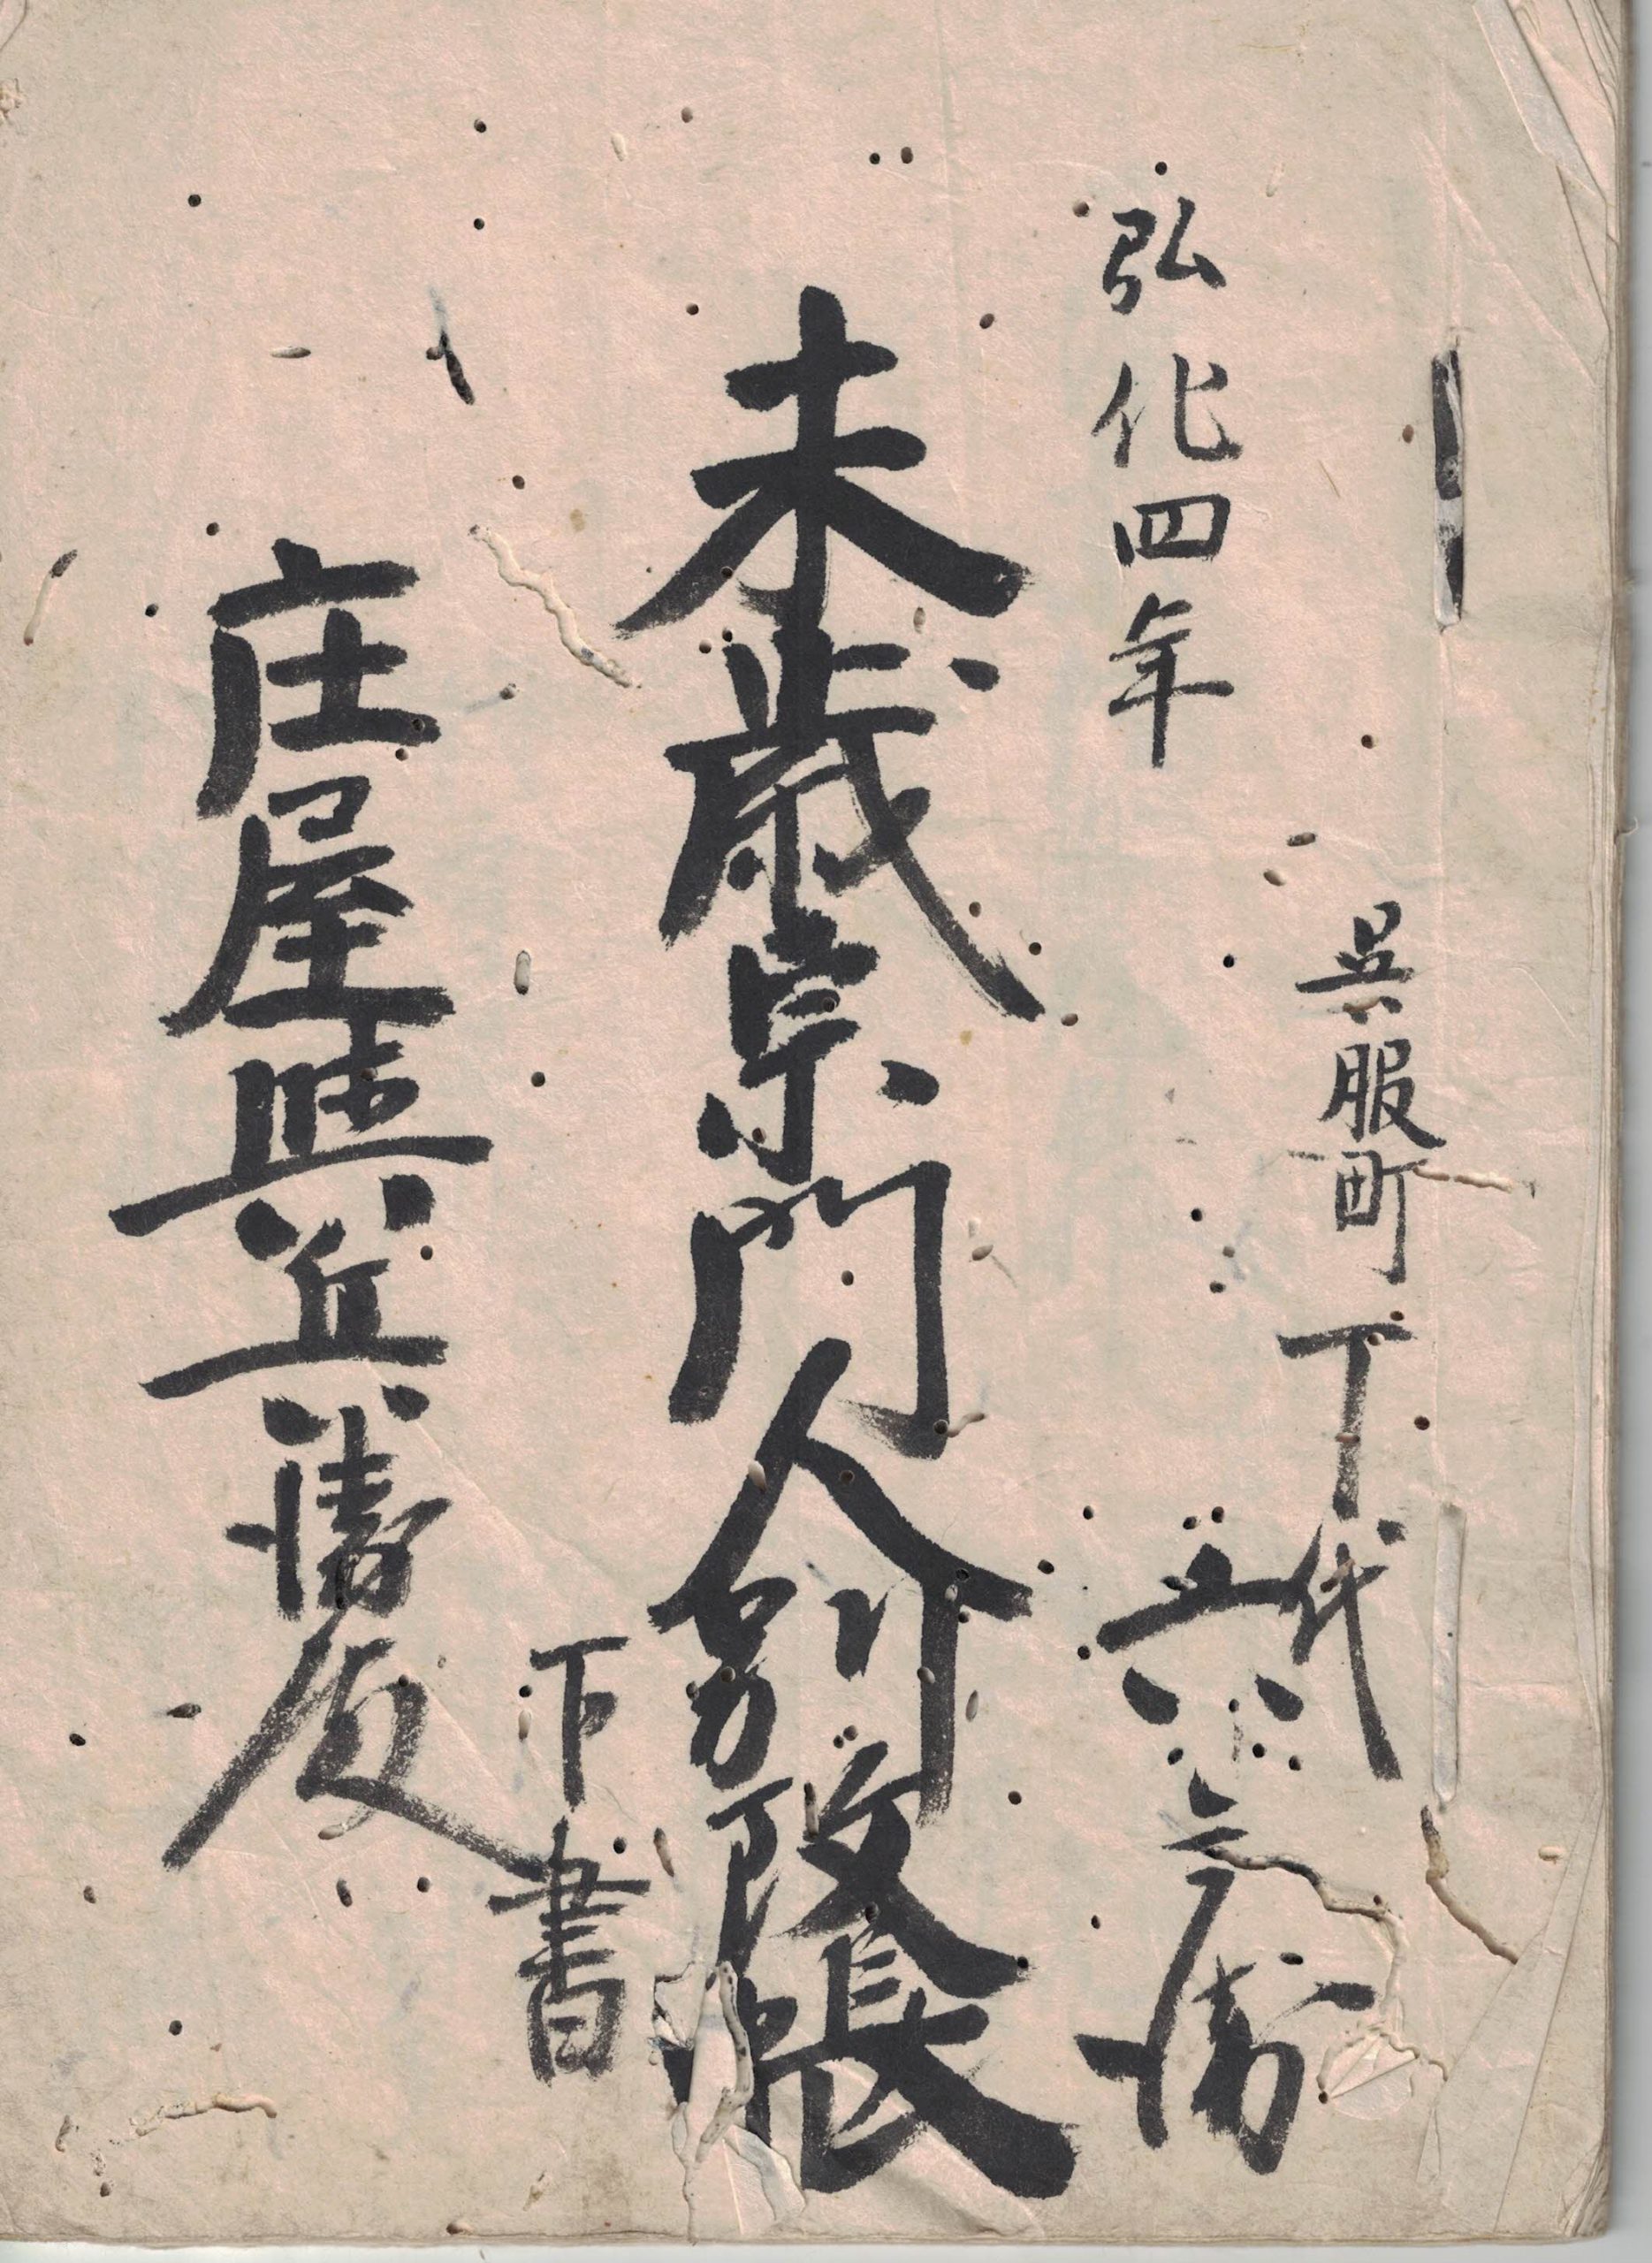 呉服町丁代
弘化四年
六
未歳宗門人別改帳
下書
庄屋與兵衛殿